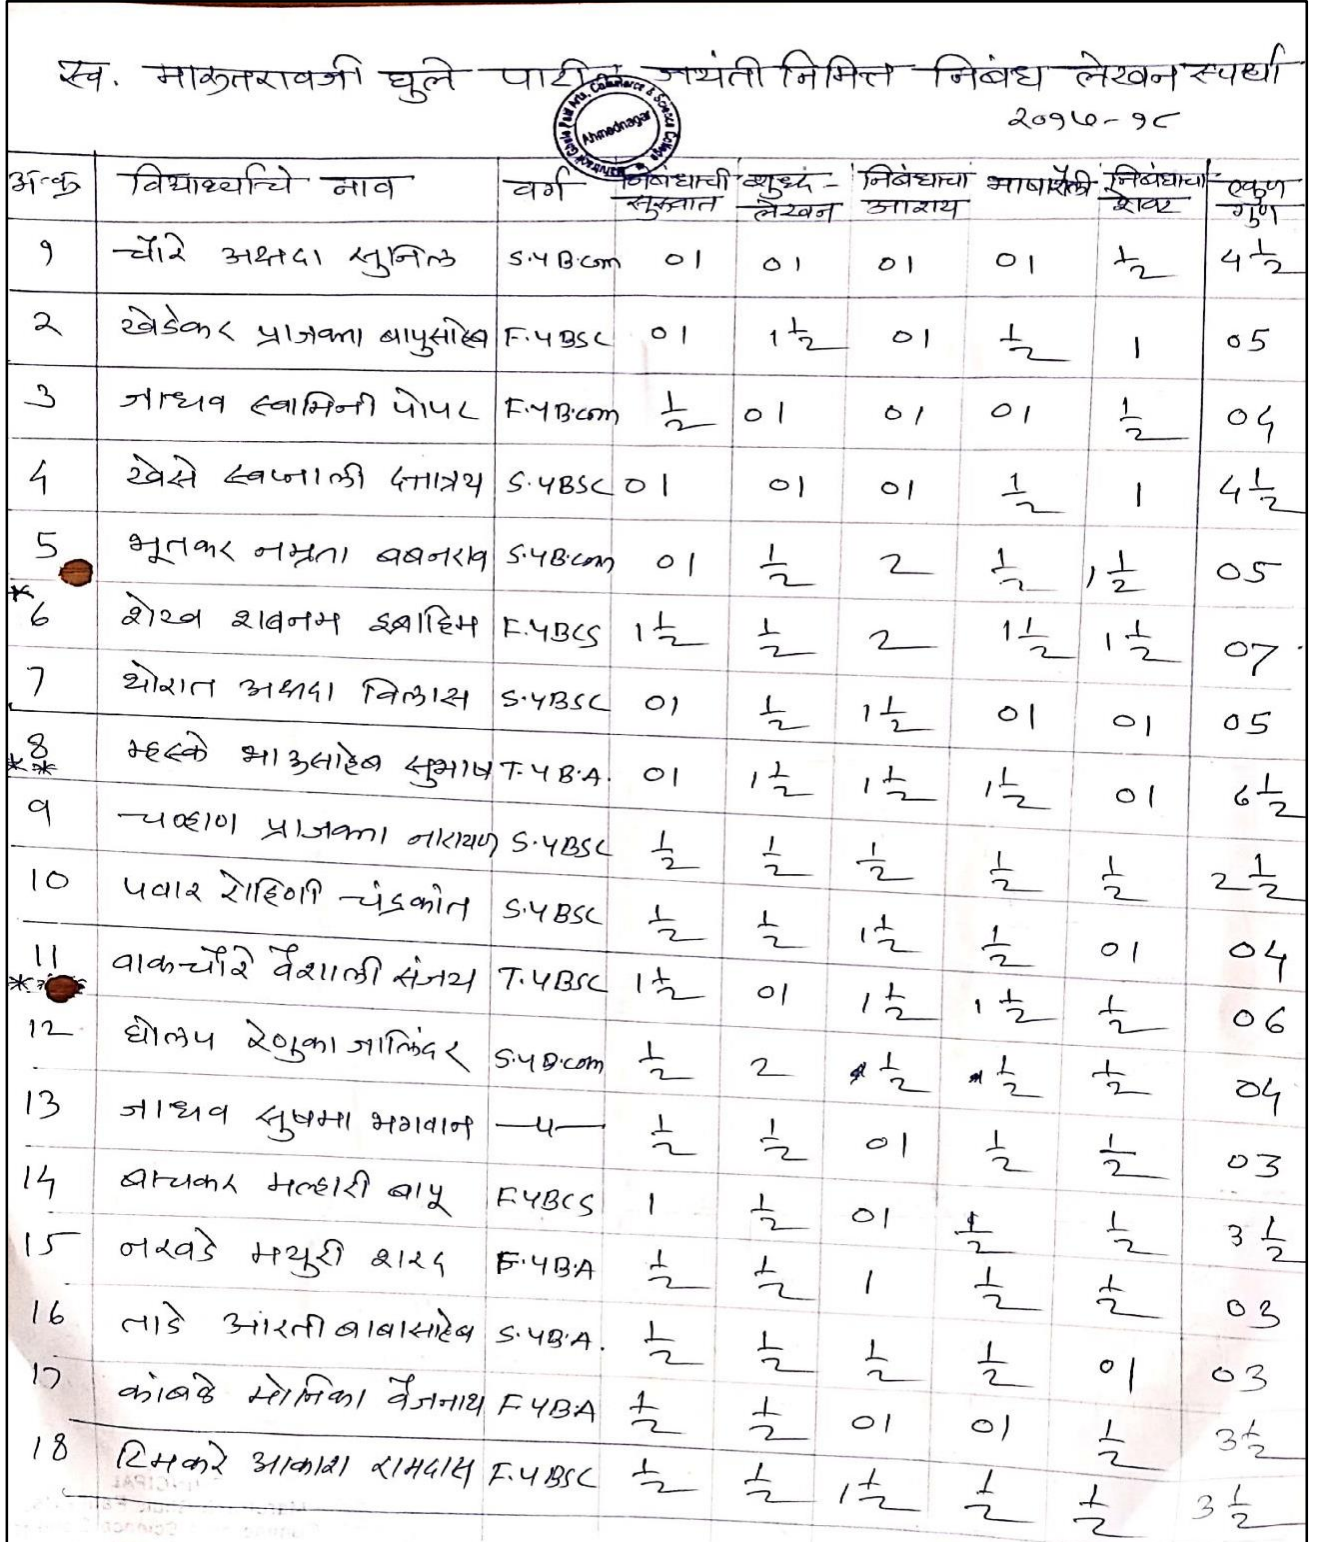 स्व. मारुतरावजी घुले पाटील जयंती निमित्त निबंध लेखन स्पर्धा
२०१७-१८
Marutraoji Ghule Patil Arts, Commerce & Science College, Ahmednagar
अ.क्र विद्यार्थ्याचे नाव वर्ग निबंधाची सुरुवात शुध्द-लेखन निबंधाचा आशय भाषाशैली निबंधाचा शेवट एकुण गुण
१ चौरे अक्षदा सुनिल S.YB.com 01 01 01 01 1/2 4 1/2
२ खेडेकर प्राजक्ता बापुसाहेब F.YBSC 01 1 1/2 01 1/2 1 05
3 जाधव स्वामिनी पोपट F.YB.com 1/2 01 01 01 1/2 04
4 खेसे स्वप्नाली दत्तात्रय S.YBSC 01 01 01 1/2 1 4 1/2
5 भूतकर नम्रता बबनराव S.YB.com 01 1/2 2 1/2 1 1/2 05
* 6 शेख शबनम इब्राहिम F.YBCS 1 1/2 1/2 2 1 1/2 1 1/2 07
7 थोरात अक्षदा विलास S.YBSC 01 1/2 1 1/2 01 01 05
8 ** म्हस्के भाऊसाहेब सुभाष T.YB.A. 01 1 1/2 1 1/2 1 1/2 01 6 1/2
9 चव्हाण प्राजक्ता नारायण S.YBSC 1/2 1/2 1/2 1/2 1/2 2 1/2
10 पवार रोहिणी चंद्रकांत S.YBSC 1/2 1/2 1 1/2 1/2 01 04
11 * वाकचौरे वैशाली संजय T.YBSC 1 1/2 01 1 1/2 1 1/2 1/2 06
12 घोलप रेणुका जालिंदर S.YB.com 1/2 2 1/2 1/2 1/2 04
13 जाधव सुषमा भगवान —"— 1/2 1/2 01 1/2 1/2 03
14 बाचकर मल्हारी बापू F.YBCS 1 1/2 01 1/2 1/2 3 1/2
15 नरवडे मयुरी शरद F.YB.A 1/2 1/2 1 1/2 1/2 03
16 ताडे आरती बाबासाहेब S.YB.A. 1/2 1/2 1/2 1/2 01 03
17 कांबळे मोनिका वैजनाथ F.YB.A 1/2 1/2 01 01 1/2 3 1/2
18 टिमकरे आकाश रामदास F.YBSC 1/2 1/2 1 1/2 1/2 1/2 3 1/2